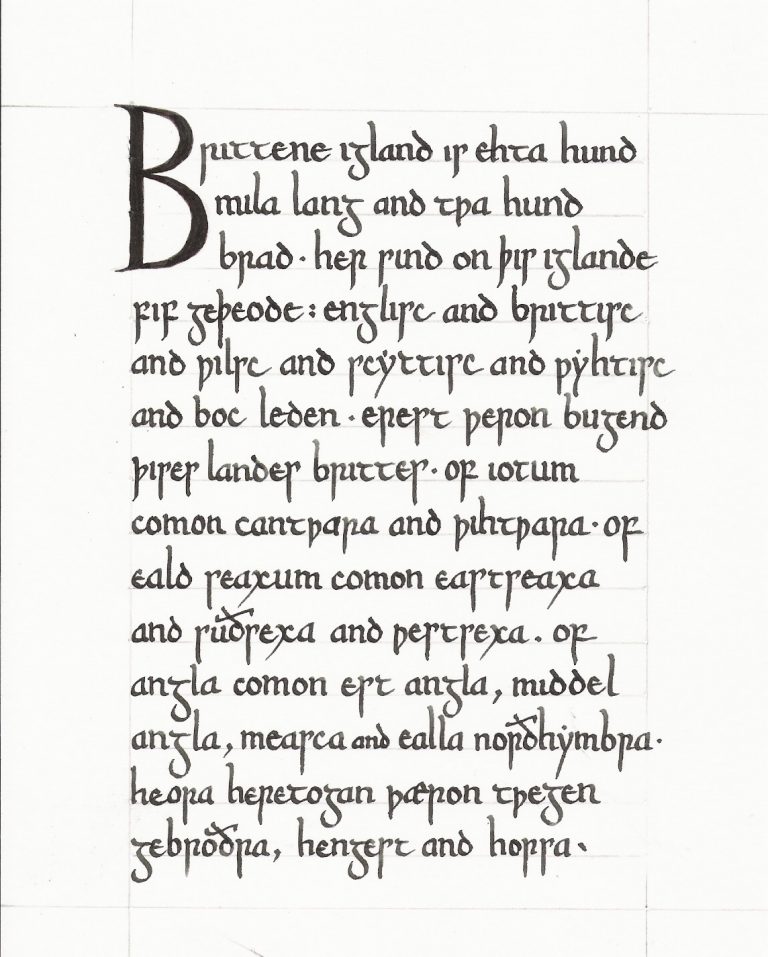 Brittene igland is ehta hund
mila lang and tƿa hund
brad· her sind on þis iglande
fif geþeode: englisc and brittisc
and ƿilsc and scẏttisc and pẏhtisc
and boc leden· erest ƿeron bugend
þises landes brittes· of iotum
comon cantƿara and ƿihtƿara· of
eald seaxum comon eastseaxa
and suðsexa and ƿestsexa. of
angla comon est angla, middel
angla, mearca and ealla norðhẏmbra·
heora heretogan ƿæron tƿegen
gebroðra, hengest and horsa·